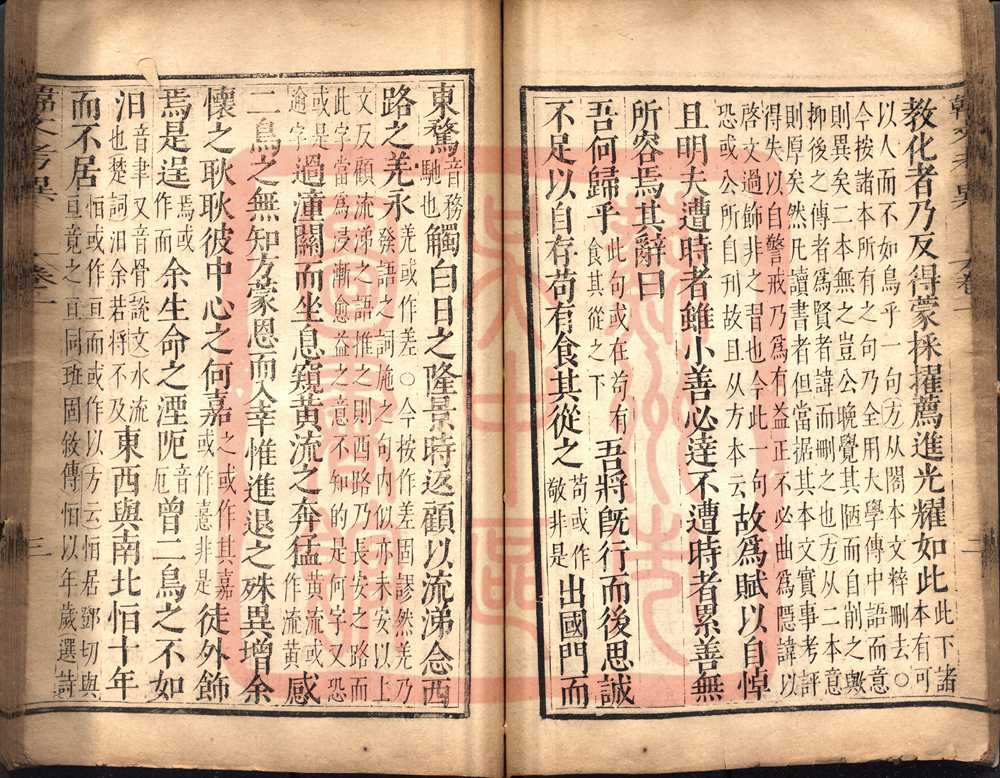 韓文考異 卷一 二
教化者乃反得蒙採擢薦進光耀如此此下諸本有可
以人而不如鳥乎一句方从閣本文粹刪去○
今按諸本所有之句乃全用大學傳中語而意
則異矣二本無之豈公晚覺其陋而自削之與
抑後之傳者爲賢者諱而刪之也方从二本意
則厚矣然凡讀書者但當据其本文實事考評
得失以自警戒乃爲有益正不必曲爲隱諱以
啓文過飾非之習也今此一句恐或公所自刊故且从方本云故爲賦以自悼
且明夫遭時者雖小善必達不遭時者累善無
所容焉其辭曰
吾何歸乎此句或在苟有食其從之下吾將旣行而後思誠
不足以自存苟有食其從之苟或作敬非是出國門而
東騖音務馳也觸白日之隆景時返顧以流涕念西
路之羌永羌或作差○今按作差固謬然羌乃發語之詞施之句内似亦未安以上
文反顧流涕之語推之則西路乃長安之路
此字當爲浸漸愈益之意不知的是何字又恐
或是逾字過潼關而坐息窺黃流之奔猛黃流或作流黃感
二鳥之無知方蒙恩而入幸惟進退之殊異增余
懷之耿耿彼中心之何嘉之或作其嘉或作意非是徒外飾
焉是逞焉或作而余生命之湮阨音厄曾二鳥之不如
汨音聿又音骨說文水流也楚詞汨余若將不及東西與南北恒十年
而不居恒或作亘而或作以方云恒居鄧切與亘竟之亘同班固敘傳恒以年歲選詩
韓文考異 卷一 三